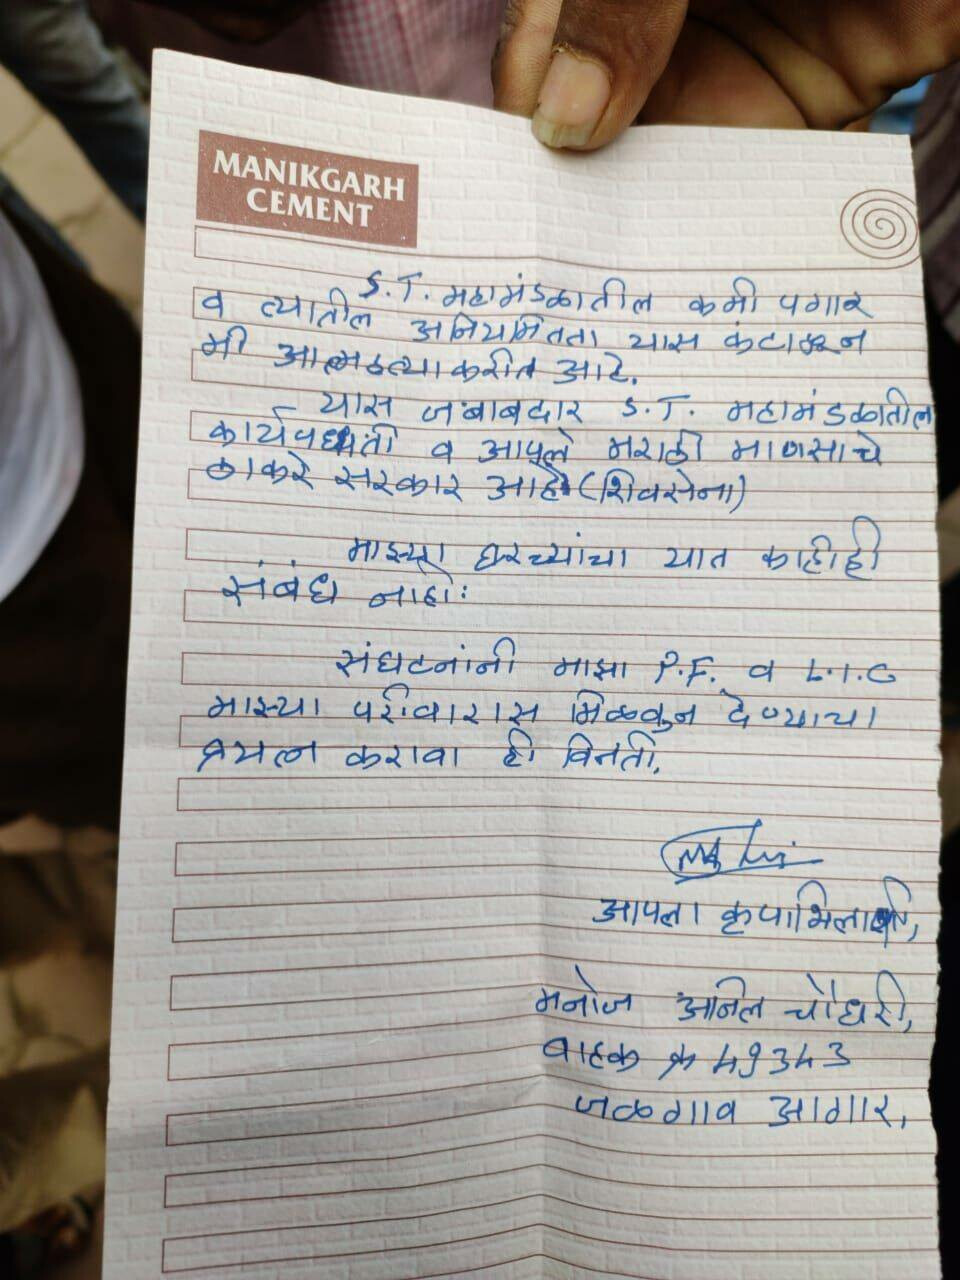 MANIKGARH
CEMENT
S.T. महामंडळातील कमी पगार
व त्यातील अनियमितता यास कंटाळून
मी आत्महत्या करीत आहे.
यास जबाबदार S.T. महामंडळातील
कार्यपध्दती व आपले मराठी माणसाचे
ठाकरे सरकार आहे (शिवसेना)
माझ्या घरच्यांचा यात काहीही
संबंध नाही.
संघटनांनी माझा P.F. व L.I.C
माझ्या परिवारास मिळवुन देण्याचा
प्रयत्न करावा ही विनंती.
आपला कृपाभिलाषी,
मनोज अनिल चौधरी,
वाहक क्र 49343
जळगाव आगार.